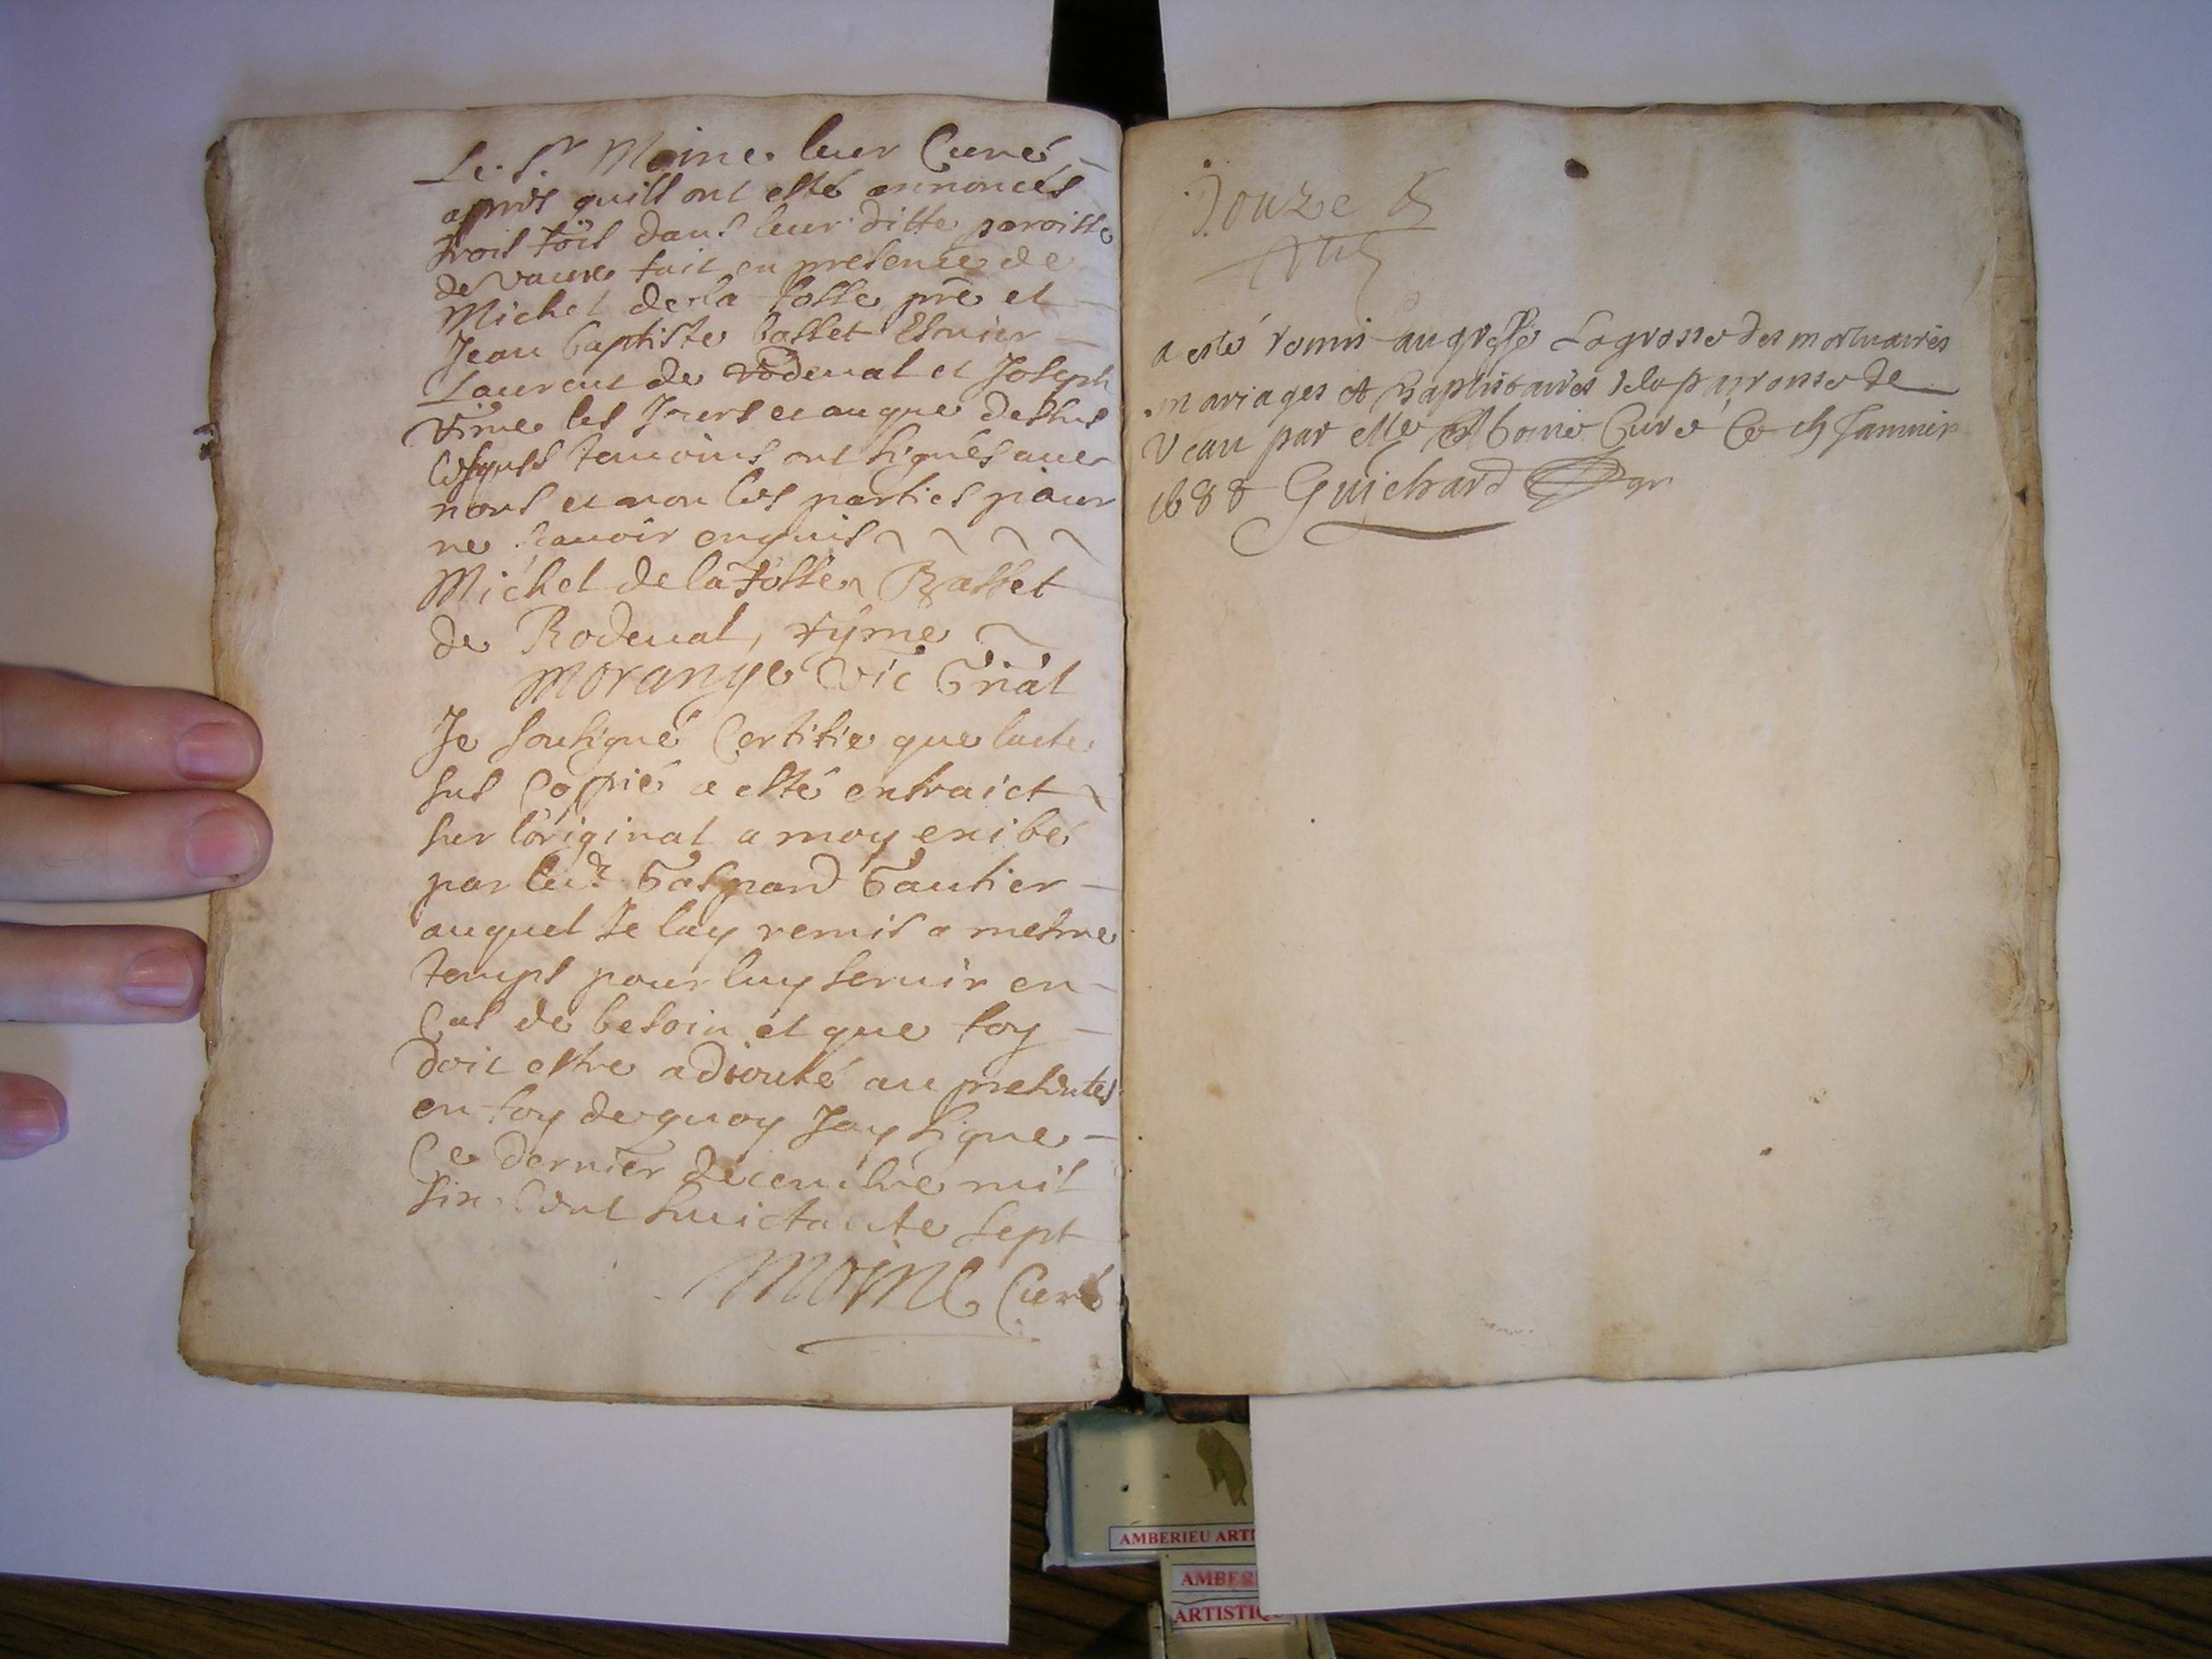 Le Sr Moine leur Curé
apres quils ont esté annoncés
trois fois dans leur ditte paroisse
de Vaux fait en presence de
Michel de la fosse pre et
Jean baptiste basset Esnuier
Laurent de rodeual et Joseph
vime les Jours et an que dessus
lesquels temoins ont signés auec
nous et non les parties pour
ne scauoir enquis
Michel de la fosse Basset
de Rodeual, vyme
Morange Vic Gnal
Je soussigné Certifie que lacte
sus Coppié a esté extraict
sur loriginal a moy exibé
par led Gaspard Gautier
auquel Je lay remis a mesme
temps pour luy seruir en
Cas de besoin et que foy
doit estre adiouté au presentes
en foy de quoy Jay signe
Ce dernier decembre mil
six Cent huictante sept
Moine Curé
Douze
a esté remis au greffe La grosse des mortuaires
mariages et Baptistaires de la parroisse de
Veau par Mre Moine Curé Ce Januier
1688 Guichard
AMBERIEU ARTI
AMBER
ARTISTIQU